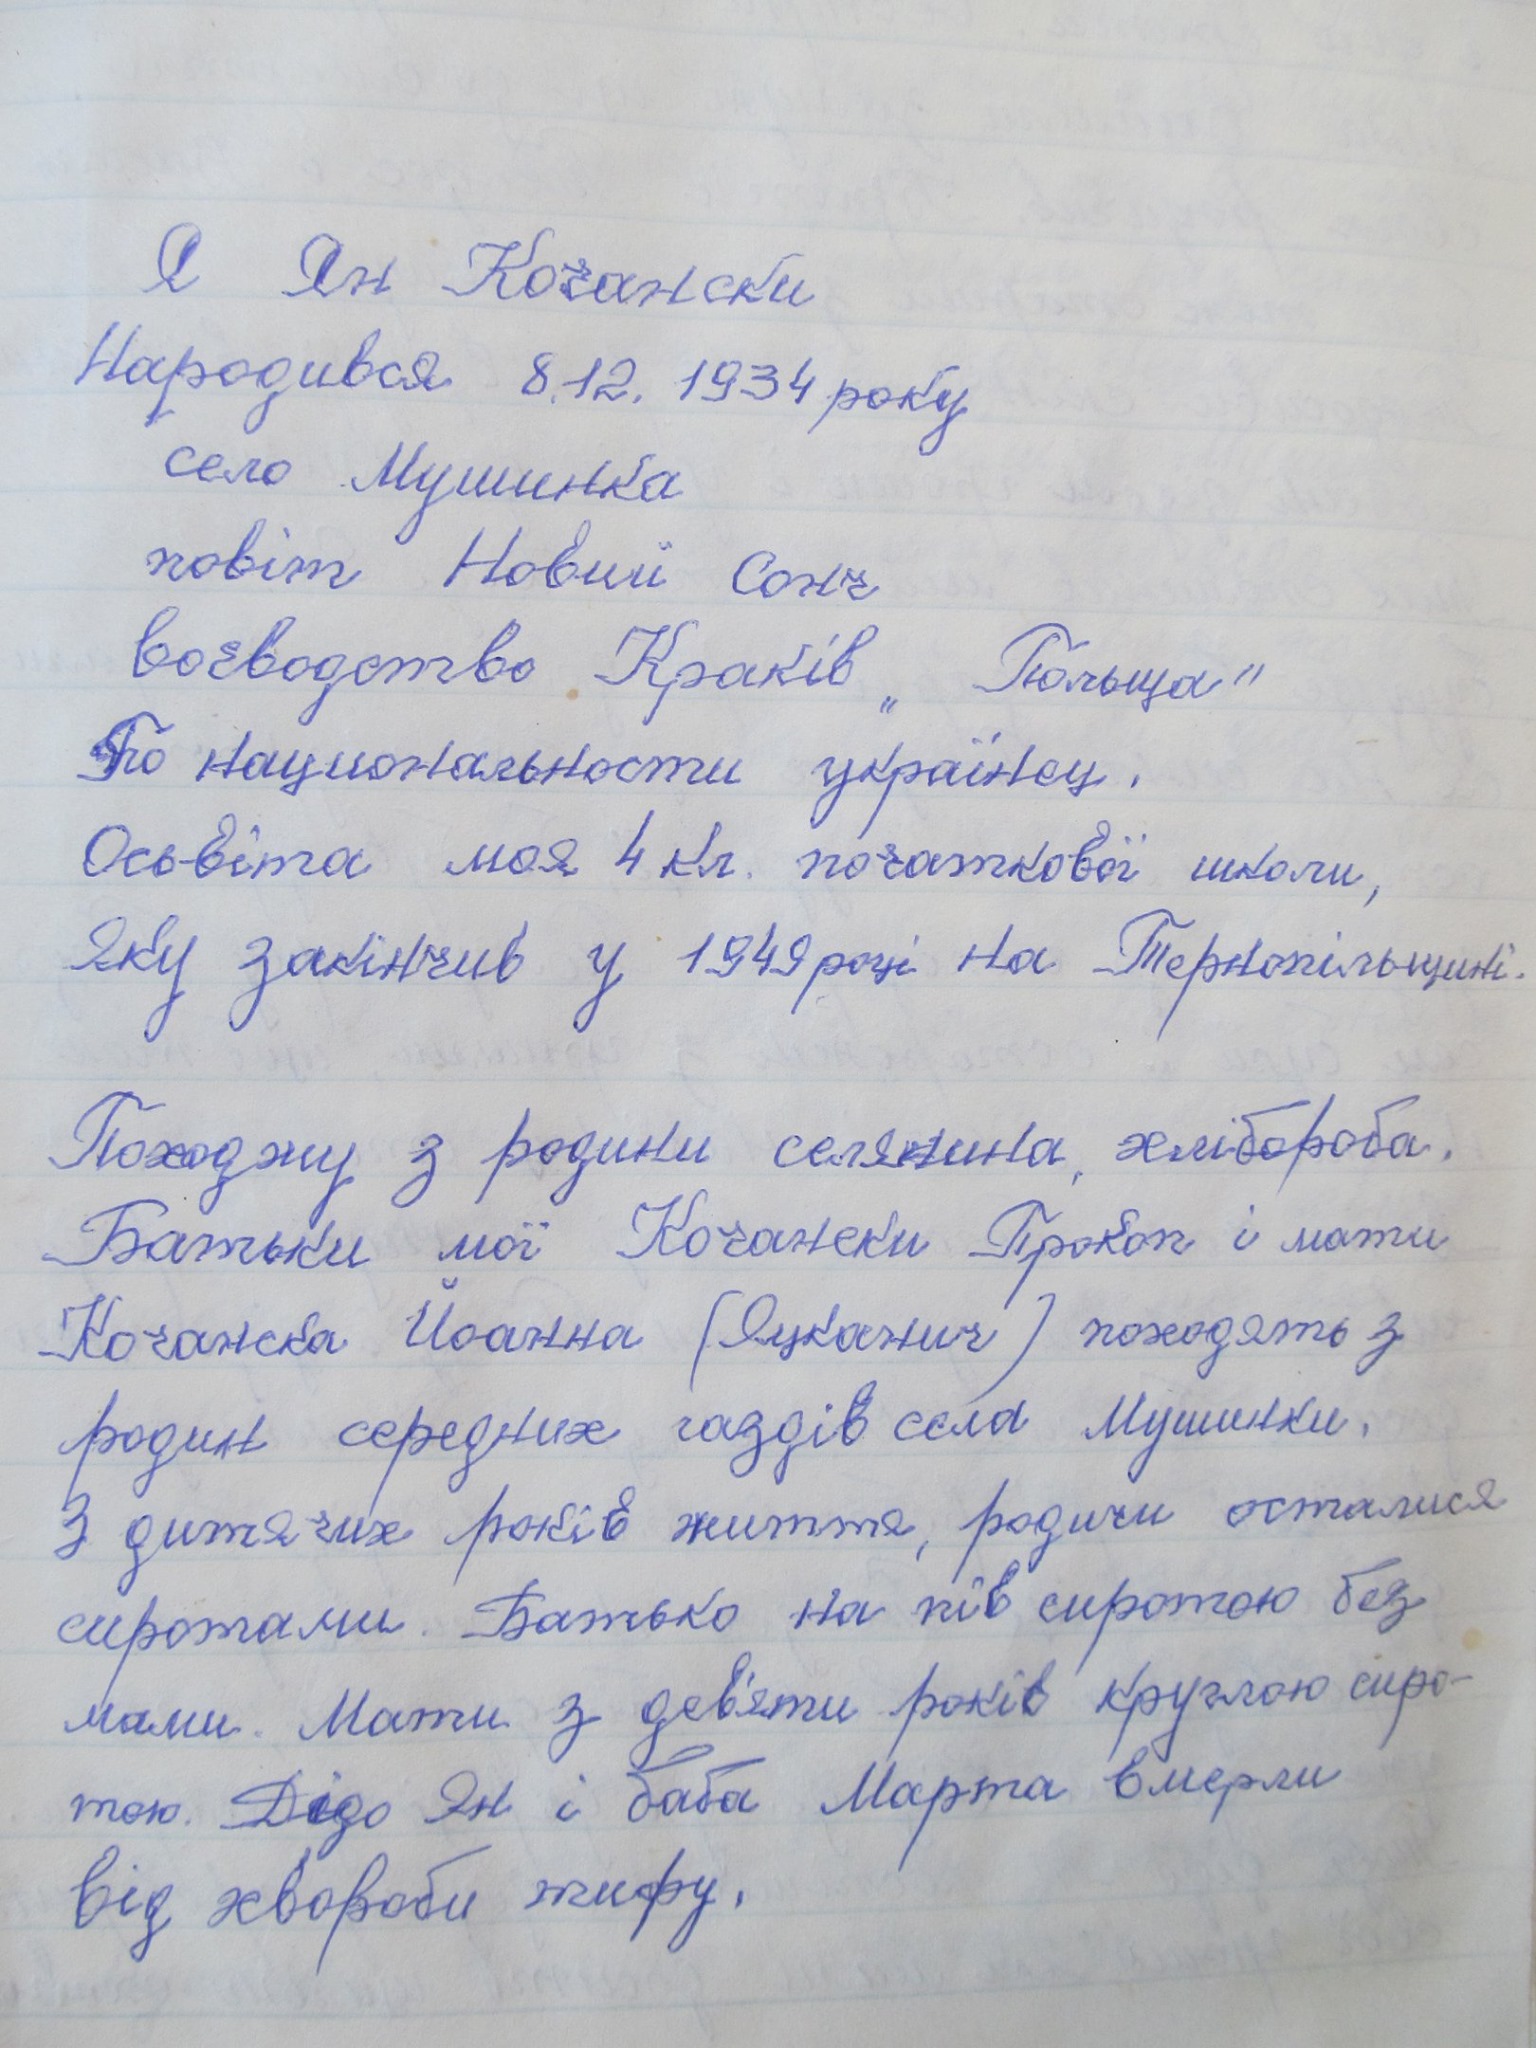 Я Ян Кочански
Народився 8.12. 1934 року
село Мушинка
повіт Новий Сонч
воєводство Краків „Польща"
По национальности українец.
Осьвіта моя 4 кл. початкової школи,
яку закінчив у 1949 році на Тернопільщині.
Походжу з родини селянина, хлібороба.
Батьки мої Кочански Прокоп і мати
Кочанска Йоанна (Яцканич) походять з
родин середних газдів села Мушинки.
З дитячих років життя, родичи осталися
сиротами. Батько на пів сиротою без
мами. Мати з девяти років круглою сиро-
тою. Дідо Ян і баба Марта вмерли
від хвороби тифу.